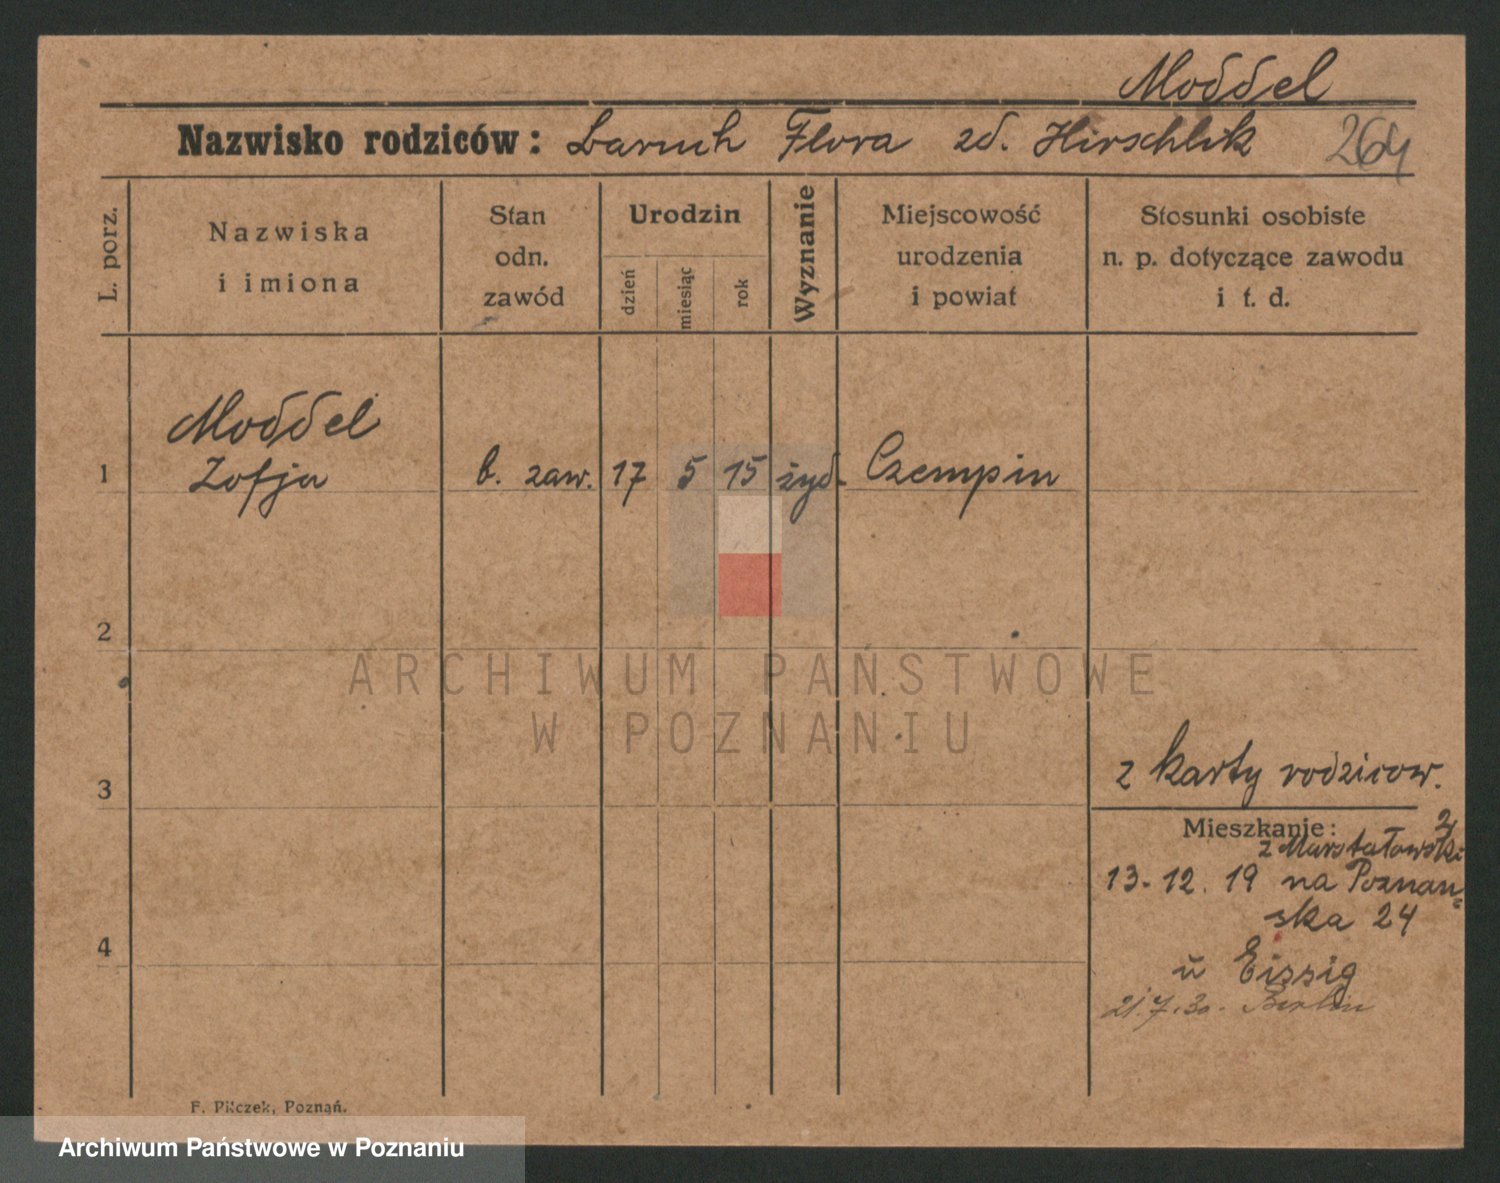 Moddel
Nazwisko rodziców: Baruch Flora zd. Hirschlik 264
L. porz.
Nazwiska
i imiona
Stan
odn.
zawód
Urodzin
dzień
miesiąc
rok
Wyznanie
Miejscowość
urodzenia
i powiat
Stosunki osobiste
n. p. dotyczące zawodu
i t. d.
Moddel
1 Zofja b. zaw. 17 5 15 żyd. Czempin
2
ARCHIWUM PAŃSTWOWE
W POZNANIU
z karty rodzicow.
3
Mieszkanie: 2
z Marstałowski
13. 12. 19 na Poznan-
ska 24
4
u Eissig
21.7.30. Berlin
F. Pilczek, Poznań.
Archiwum Państwowe w Poznaniu